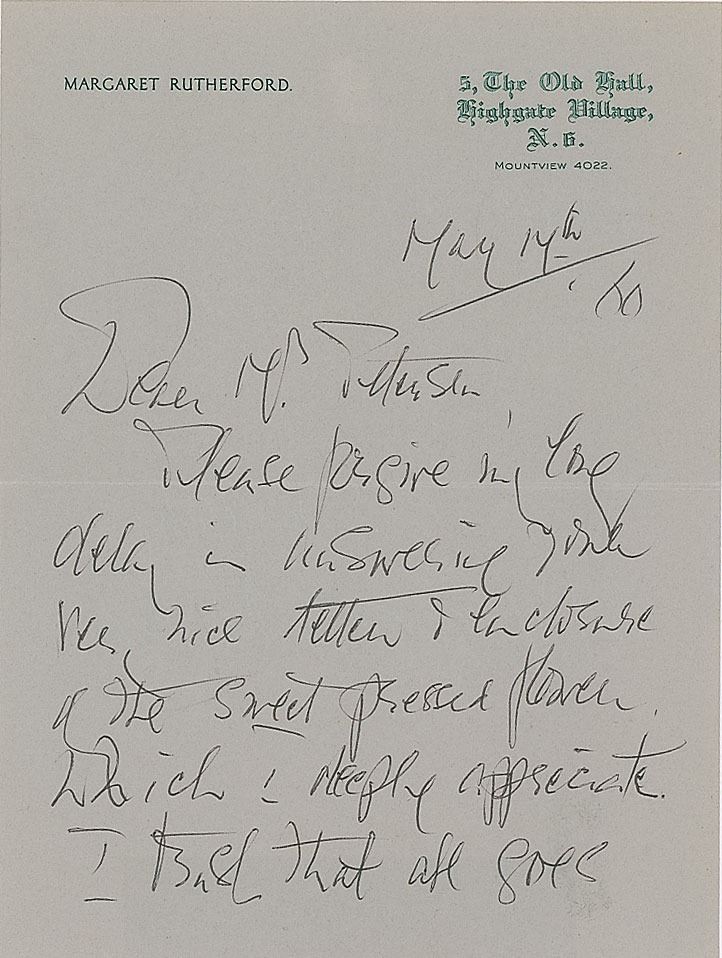 MARGARET RUTHERFORD.
5, The Old Hall,
Highgate Village,
N. 6.
MOUNTVIEW 4022.
May 14th
'60
Dear Mr. Petersen,
Please forgive my long
delay in answering your
very nice letter & enclosure
of the sweet pressed flower.
Which I deeply appreciate.
I trust that all goes